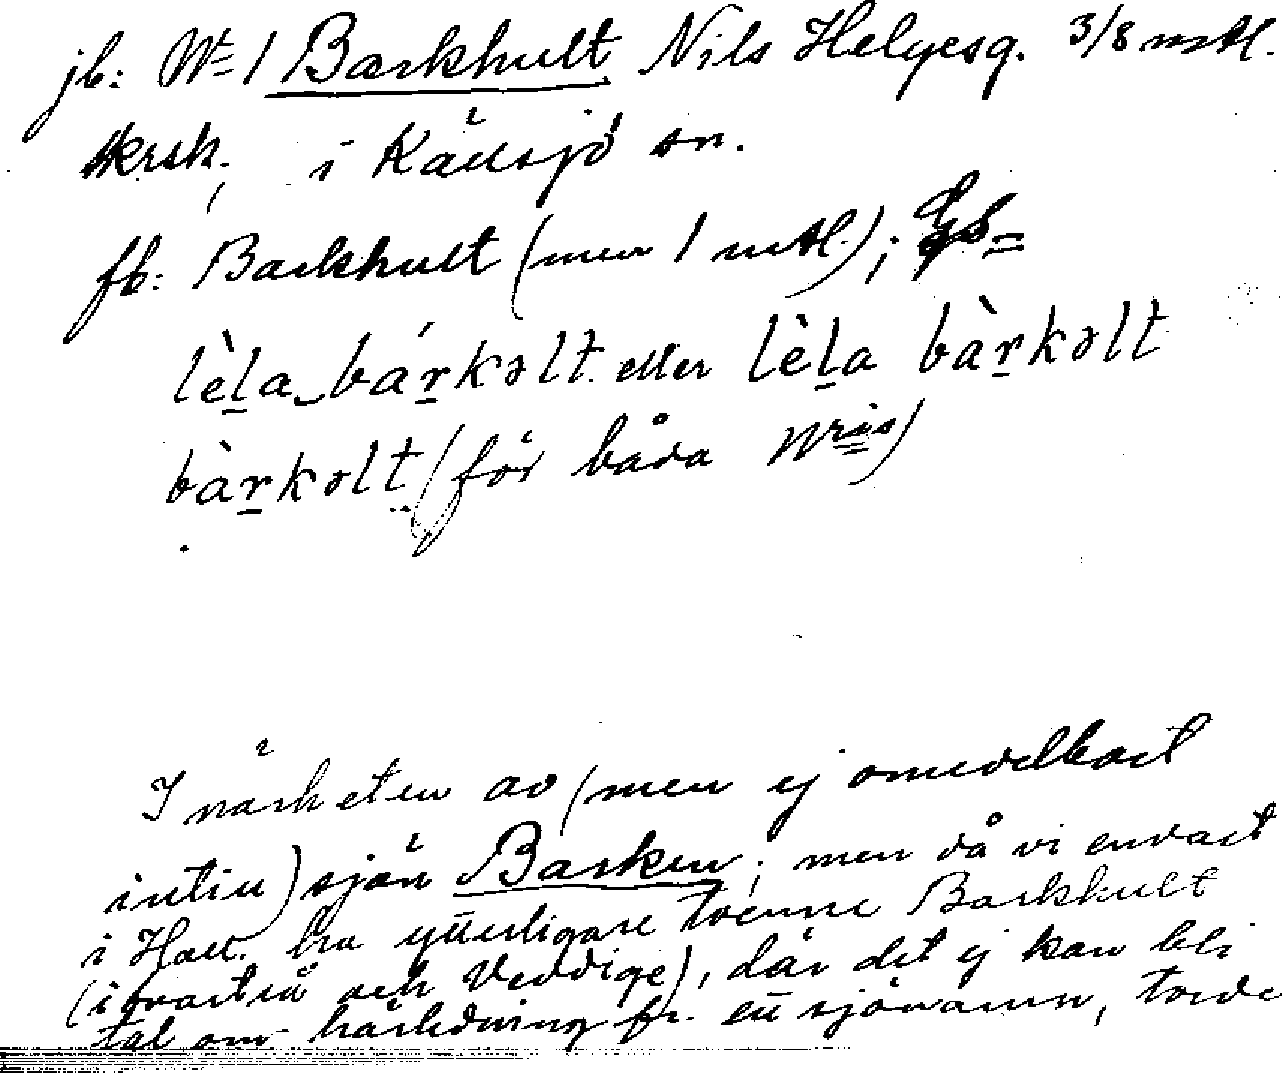 jb: Nr 1 Barkhult Nils Helgesg. 3/8 mtl.
krsk, i Källsjö sn.
fb: Barkhult (men 1 mtl.);
lèḻa bárkəlt eller lèḻa bàṟkəlt
bàṟkəlt (för båda Nris)
I närheten av (men ej omedelbart
intill) sjön Barken; men då vi endast
i Hall. ha ytterligare tvenne Barkhult
(i och Veddige), där det ej kan bli
tal om härledning fr. ett sjönamn, torde